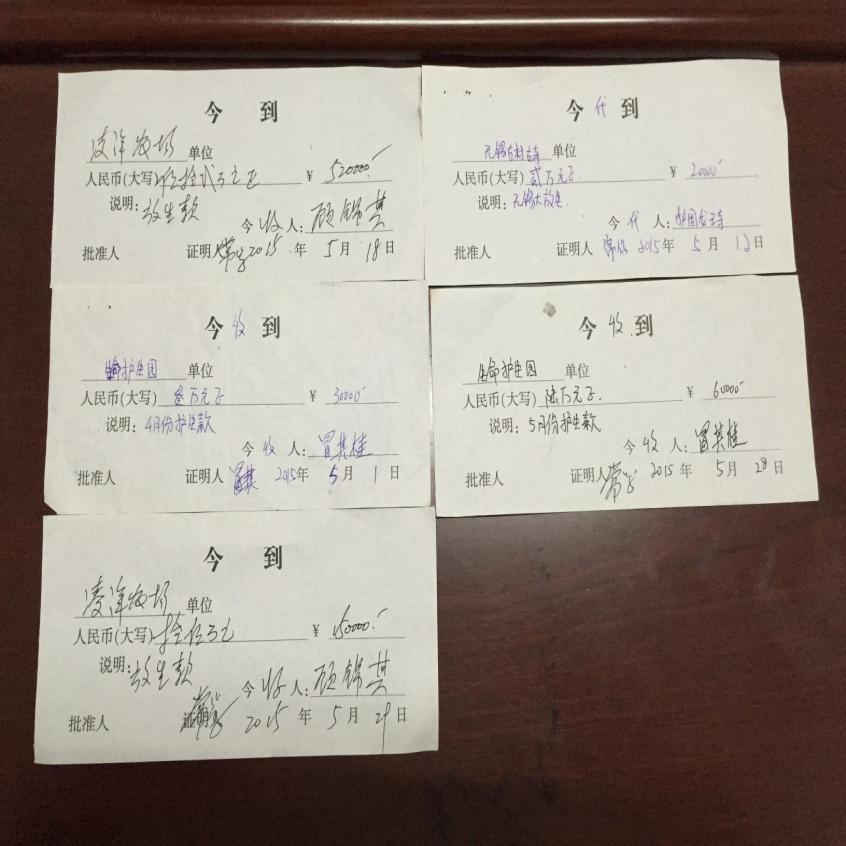 今 到
凌洋农场 单位
人民币(大写) 伍拾贰万元正 ¥ 520000.-
说明: 放生款
今 收 人: 顾锦其
批准人 证明人 2015 年 5 月 18 日
今 代 到
无锡 单位
人民币(大写) 贰万元正. ¥ 20000.-
说明: 无锡大放生
今 代 人 护国 寺
批准人 证明人 2015 年 5 月 12 日
今 收 到
生命护生园 单位
人民币(大写) 叁万元正 ¥ 30000.-
说明: 4月份护生款
今 收 人: 冒其桂
批准人 证明人 冒其 2015 年 5 月 1 日
今 收 到
生命护生园 单位
人民币(大写) 陆万元正. ¥ 60000.-
说明: 5月份护生款
今 收 人: 冒其桂
批准人 证明人 2015 年 5 月 28 日
今 到
凌洋农场 单位
人民币(大写) 拾伍万元 ¥ 150000.-
说明: 放生款
今 收 人: 顾锦其
批准人 证明 2015 年 5 月 29 日